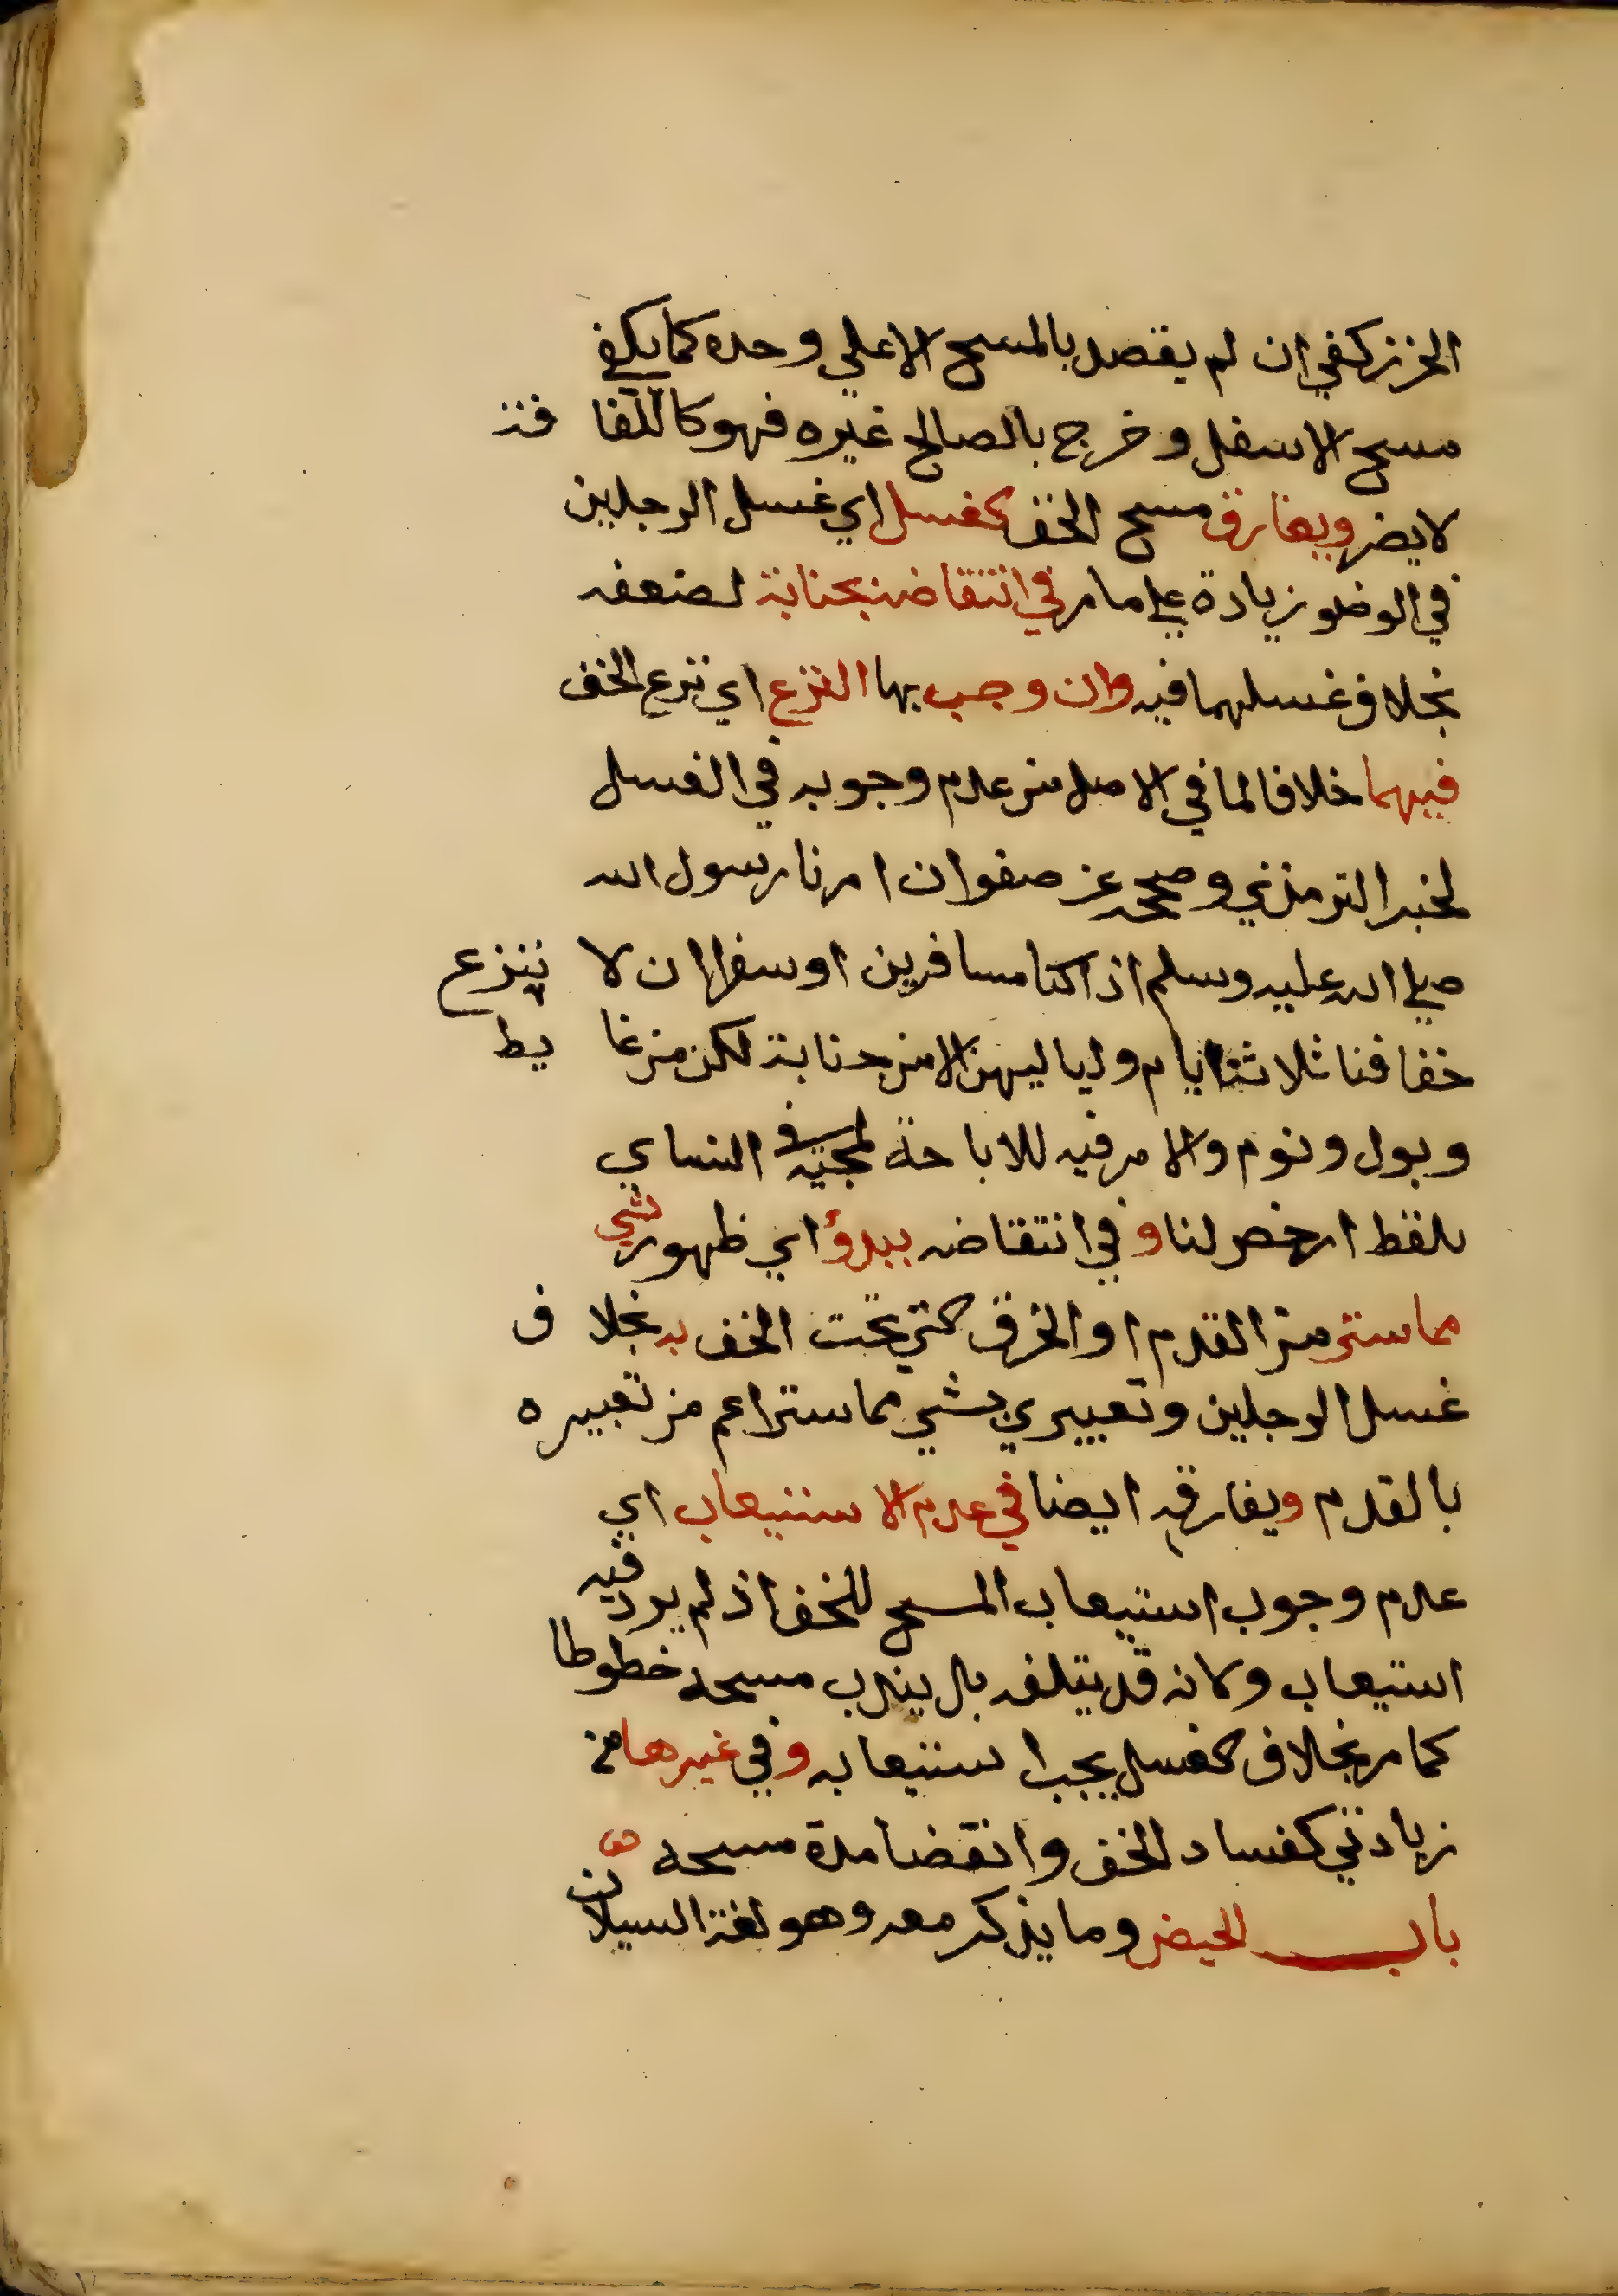 الخرز كفي ان لم يقصد بالمسح الاعلي وحده كما يكفي
مسح الاسفل وخرج بالصالح غيره فهو كاللفافة
لا يضر ويفارق مسح الخف كغسل اي غسل الرجلين
في الوضو زيادة علي ما مر في انتقاضه بجنابة لضعفه
بخلاف غسلهما فيه وان وجب بها النزع اي نزع الخف
فيهما خلافا لما في الاصل من عدم وجوبه في الغسل
لخبر الترمذي وصححه عن صفوان امرنا رسول الله
صلي الله عليه وسلم اذا كنا مسافرين او سفرا ان لا ننزع
خفافنا ثلاثة ايام ولياليهن الا من جنابة لكن من غايط
وبول ونوم والامر فيه للاباحة لمجيه في النساي
بلفظ ارخص لنا و في انتقاضه ببدؤ اي ظهور شي
مما ستر من القدم او الخرق كتي تحت الخف به بخلاف
غسل الرجلين وتعبيري بشي مما ستر اعم من تعبيره
بالقدم ويفارقه ايضا في عدم الاستيعاب اي
عدم وجوب استيعاب المسح للخف اذ لم يرد فيه
استيعاب وكانه قد يتلفه بل يندب مسحه خطوطا
كما مر بخلاف كغسل يجب استيعابه وفي غيرها من
زيادتي كفساد الخف وانقضا مدة مسحه
باب الحيض وما يذكر معه وهو لغة السيلان